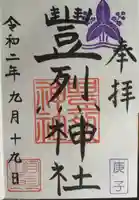 奉拝
豐烈神社
令和二年九月十九日
庚子